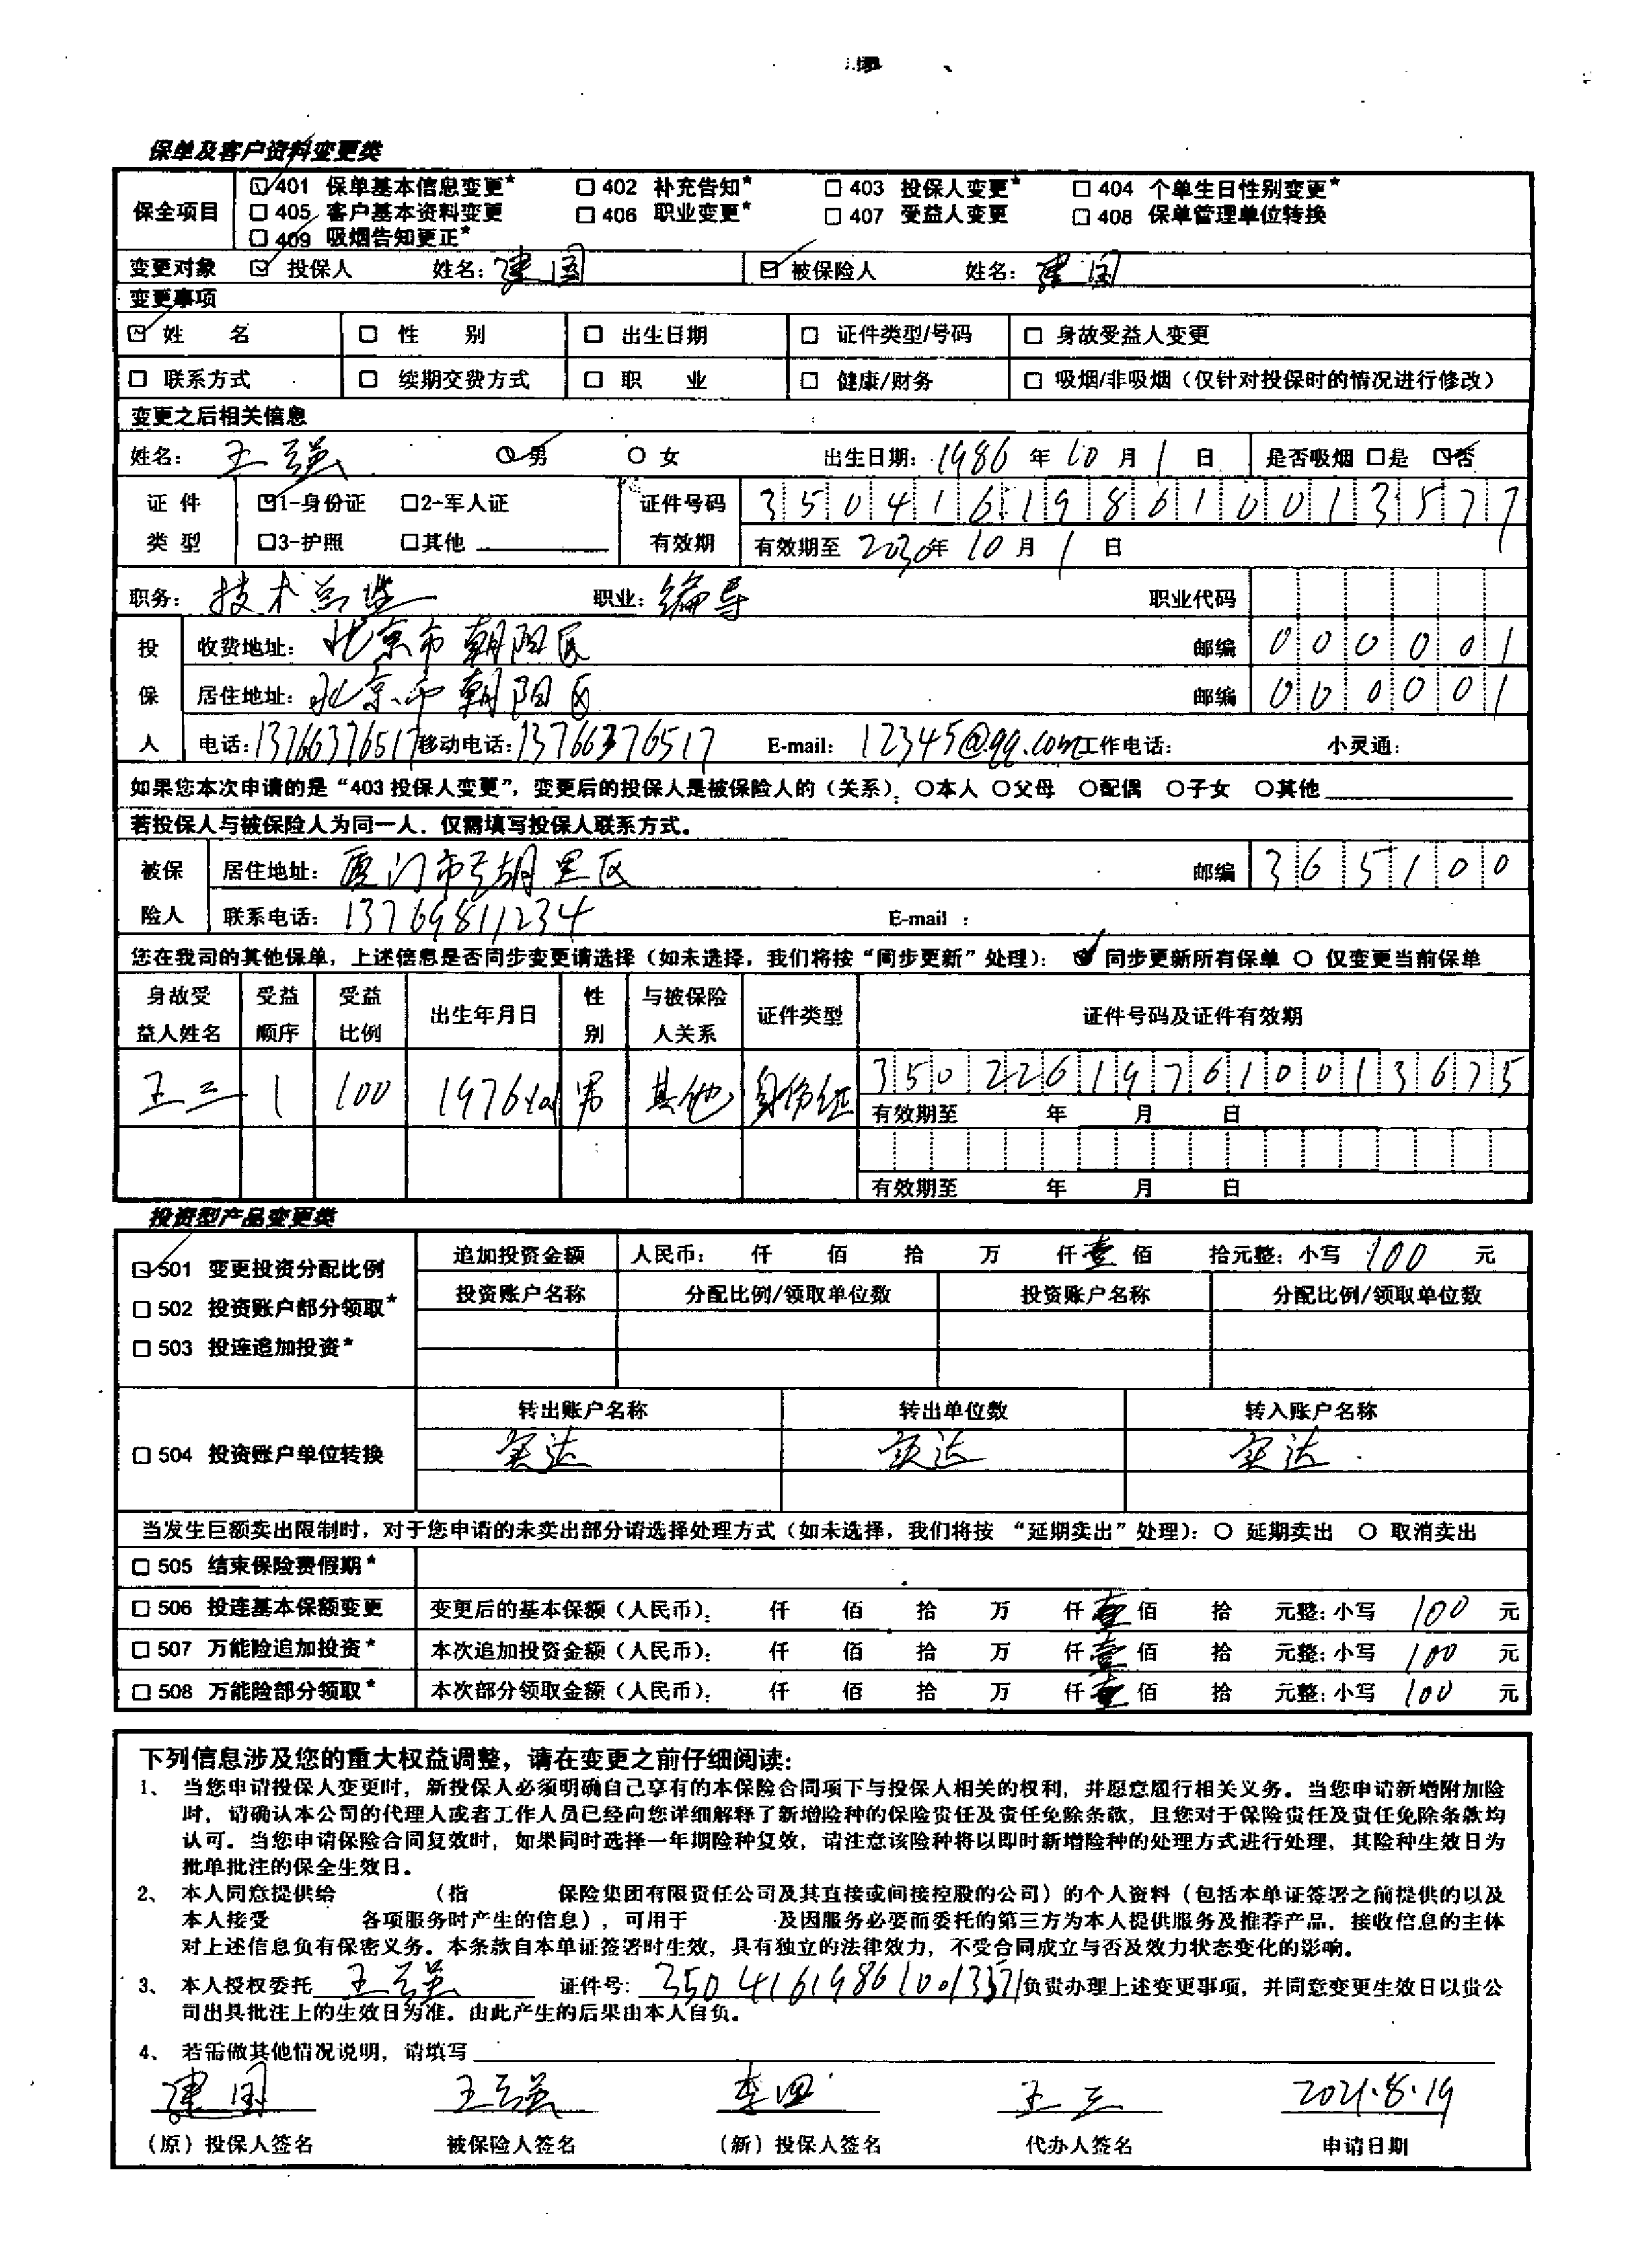 保单及客户资料变更类
保全项目 ☑401 保单基本信息变更* □402 补充告知* □403 投保人变更* □404 个单生日性别变更*
□405 客户基本资料变更 □406 职业变更* □407 受益人变更 □408 保单管理单位转换
□409 吸烟告知更正*
变更对象 ☑投保人 姓名：建国 ☑被保险人 姓名：建国
变更事项
☑姓 名 □性 别 □出生日期 □证件类型/号码 □身故受益人变更
□联系方式 □续期交费方式 □职 业 □健康/财务 □吸烟/非吸烟（仅针对投保时的情况进行修改）
变更之后相关信息
姓名：王 男 ○女 出生日期：1986年10月1日 是否吸烟 □是 ☑否
证件 ☑1-身份证 □2-军人证 证件号码 350416198610013577
类型 □3-护照 □其他 有效期 有效期至 2030年10月1日
职务：技术总监 职业：编导 职业代码
投 收费地址：北京市朝阳区 邮编 000001
保 居住地址：北京市朝阳区 邮编 000001
人 电话：13766376517 移动电话：13766376517 E-mail：12345@qq.com 工作电话： 小灵通：
如果您本次申请的是“403 投保人变更”，变更后的投保人是被保险人的（关系）：○本人 ○父母 ○配偶 ○子女 ○其他
若投保人与被保险人为同一人，仅需填写投保人联系方式。
被保 居住地址：厦门市湖里区 邮编 365100
险人 联系电话：13769811234 E-mail：
您在我司的其他保单，上述信息是否同步变更请选择（如未选择，我们将按“同步更新”处理）： 同步更新所有保单 ○仅变更当前保单
身故受 受益 受益 出生年月日 性 与被保险 证件类型 证件号码及证件有效期
益人姓名 顺序 比例 别 人关系
王三 1 100 1976 男 其他 身份证 350226197610013675
有效期至 年 月 日
有效期至 年 月 日
投资型产品变更类
☑501 变更投资分配比例 追加投资金额 人民币： 仟 佰 拾 万 仟壹佰 拾元整；小写 100 元
□502 投资账户部分领取* 投资账户名称 分配比例/领取单位数 投资账户名称 分配比例/领取单位数
□503 投连追加投资*
转出账户名称 转出单位数 转入账户名称
□504 投资账户单位转换 实达 实达 实达
当发生巨额卖出限制时，对于您申请的未卖出部分请选择处理方式（如未选择，我们将按 “延期卖出”处理）：○ 延期卖出 ○ 取消卖出
□505 结束保险费假期*
□506 投连基本保额变更 变更后的基本保额（人民币）： 仟 佰 拾 万 仟壹佰 拾 元整；小写 100 元
□507 万能险追加投资* 本次追加投资金额（人民币）： 仟 佰 拾 万 仟壹佰 拾 元整；小写 100 元
□508 万能险部分领取* 本次部分领取金额（人民币）： 仟 佰 拾 万 仟壹佰 拾 元整；小写 100 元
下列信息涉及您的重大权益调整，请在变更之前仔细阅读：
1、 当您申请投保人变更时，新投保人必须明确自己享有的本保险合同项下与投保人相关的权利，并愿意履行相关义务。当您申请新增附加险
时，请确认本公司的代理人或者工作人员已经向您详细解释了新增险种的保险责任及责任免除条款，且您对于保险责任及责任免除条款均
认可。当您申请保险合同复效时，如果同时选择一年期险种复效，请注意该险种将以即时新增险种的处理方式进行处理，其险种生效日为
批单批注的保全生效日。
2、 本人同意提供给 （指 保险集团有限责任公司及其直接或间接控股的公司）的个人资料（包括本单证签署之前提供的以及
本人接受 各项服务时产生的信息），可用于 及因服务必要而委托的第三方为本人提供服务及推荐产品，接收信息的主体
对上述信息负有保密义务。本条款自本单证签署时生效，具有独立的法律效力，不受合同成立与否及效力状态变化的影响。
3、 本人授权委托 王 证件号：350416198610013571负责办理上述变更事项，并同意变更生效日以贵公
司出具批注上的生效日为准。由此产生的后果由本人自负。
4、 若需做其他情况说明，请填写
建国 王 李四 王三 2021.8.19
（原）投保人签名 被保险人签名 （新）投保人签名 代办人签名 申请日期